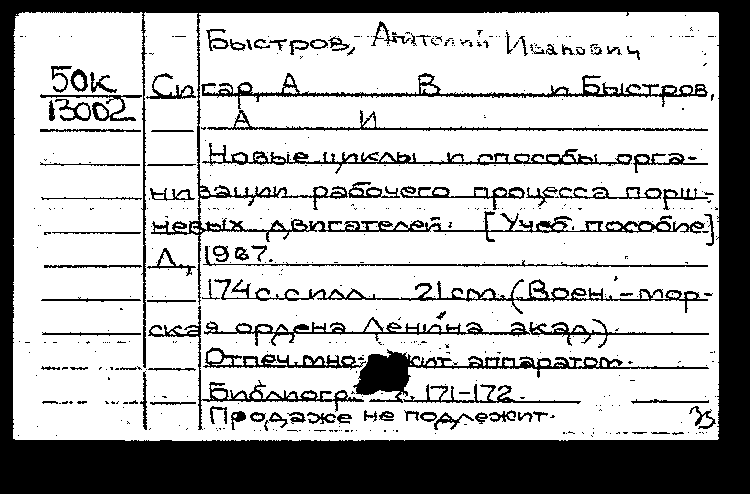 Быстров, Анатолий Иванович
50К Сигар, А В и Быстров,
13002 А И
Новые циклы и способы орга-
низации рабочего процесса порш-
невых двигателей. [Учеб. пособие]
Л., 1967.
174 с. с илл. 21 cm. (Воен.-мор-
ская ордена Ленина акад.)
Отпеч. аппаратом.
Библиогр. с. 171-172.
Продаже не подлежит.